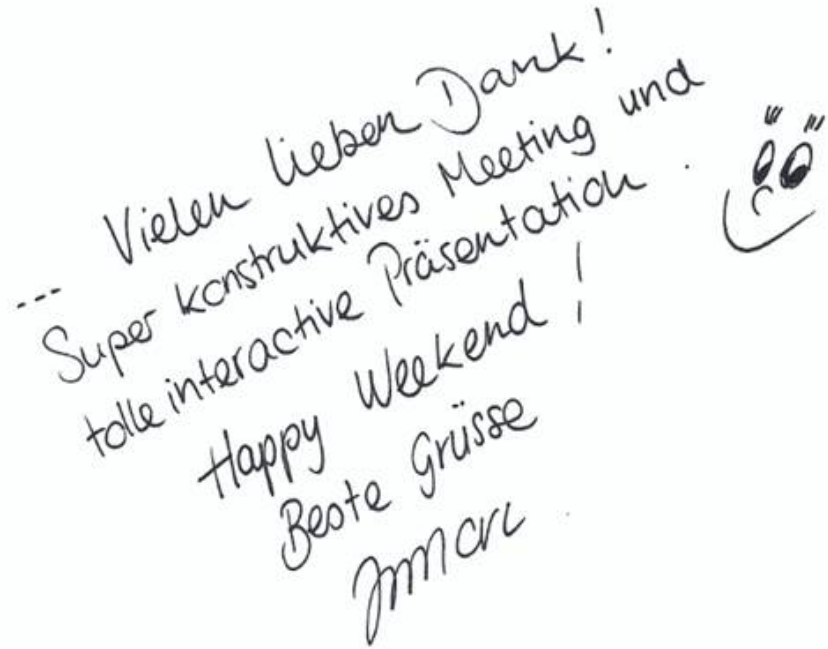 ... Vielen lieben Dank!
Super konstruktives Meeting und
tolle interactive Präsentation.
Happy Weekend!
Beste Grüsse